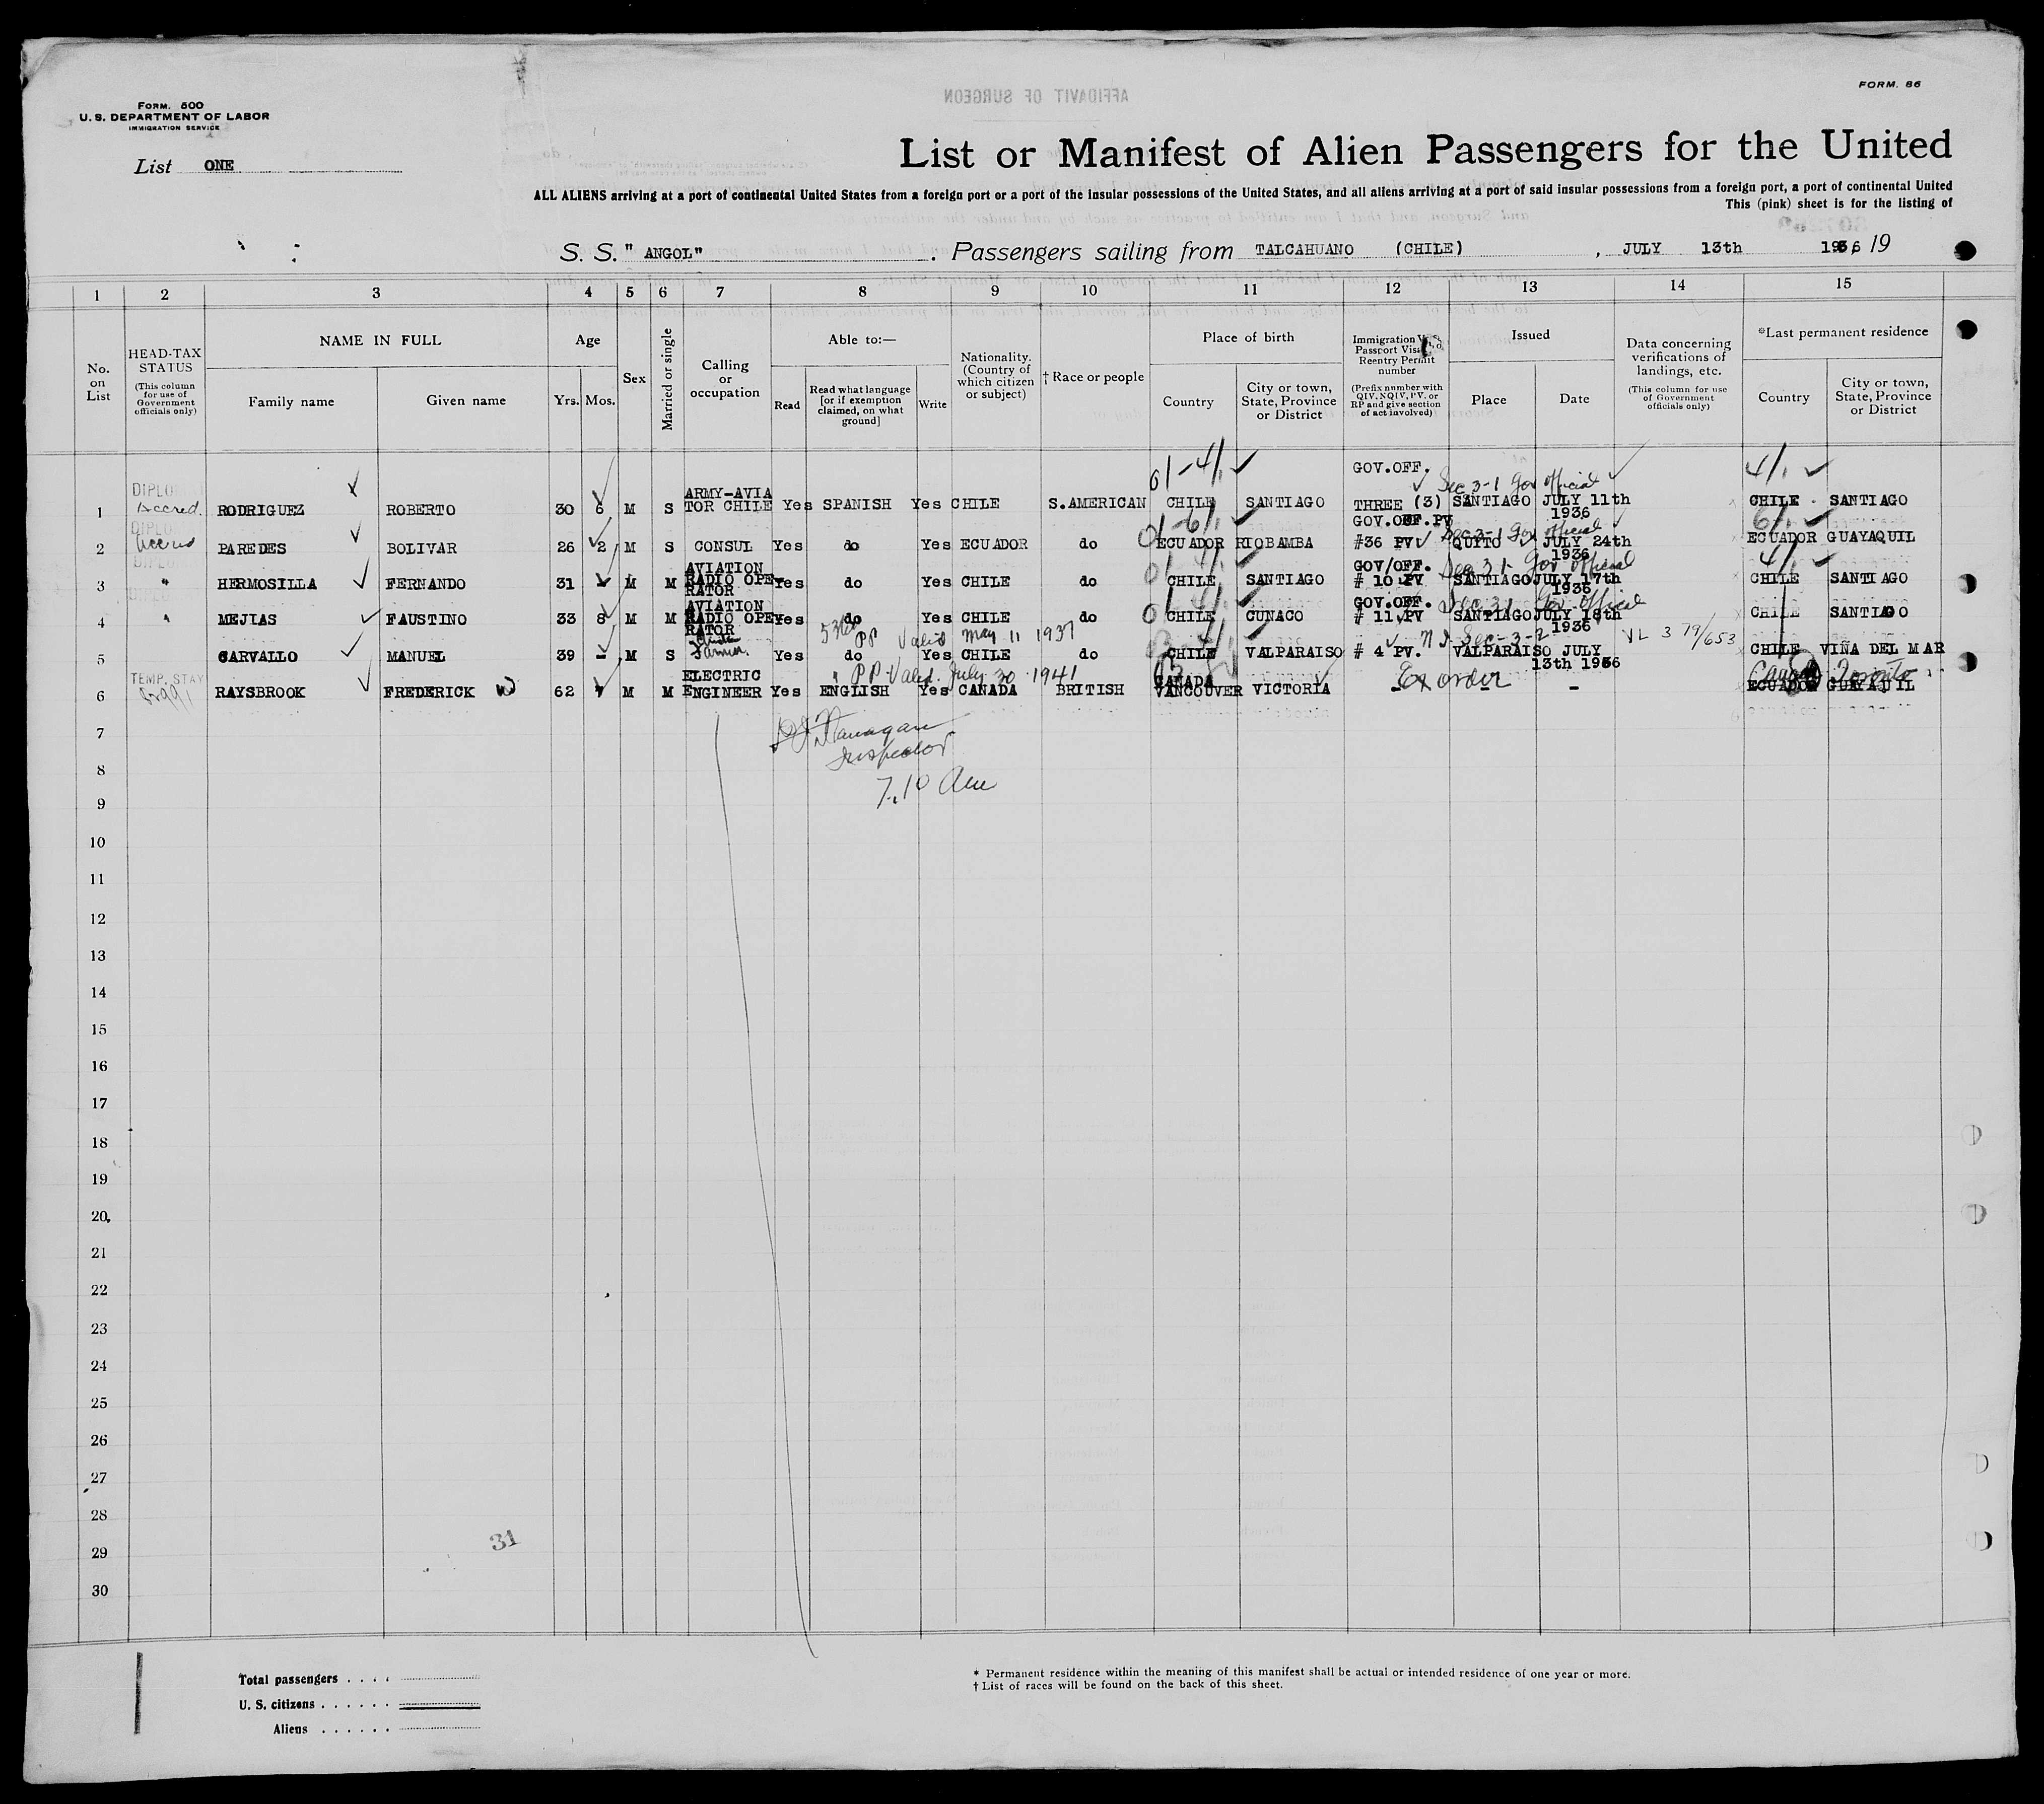 FORM. 500
U. S. DEPARTMENT OF LABOR
IMMIGRATION SERVICE
FORM. 86
AFFIDAVIT OF SURGEON
List ONE
List or Manifest of Alien Passengers for the United
ALL ALIENS arriving at a port of continental United States from a foreign port or a port of the insular possessions of the United States, and all aliens arriving at a port of said insular possessions from a foreign port, a port of continental United
This (pink) sheet is for the listing of
S. S. "ANGOL" . Passengers sailing from TALCAHUANO (CHILE) , JULY 13th 1936, 19
1 2 3 4 5 6 7 8 9 10 11 12 13 14 15
No. on List
HEAD-TAX STATUS
(This column for use of Government officials only)
NAME IN FULL
Family name Given name
Age
Yrs. Mos.
Sex
Married or single
Calling or occupation
Able to:—
Read
Read what language [or if exemption claimed, on what ground]
Write
Nationality. (Country of which citizen or subject)
† Race or people
Place of birth
Country
City or town, State, Province or District
Immigration Visa, Passport Visa, Reentry Permit number
(Prefix number with QIV, NQIV, PV, or RP and give section of act involved)
Issued
Place Date
Data concerning verifications of landings, etc.
(This column for use of Government officials only)
*Last permanent residence
Country
City or town, State, Province or District
1 DIPLO Accred. RODRIGUEZ ROBERTO 30 6 M S ARMY-AVIATOR CHILE Yes SPANISH Yes CHILE S.AMERICAN 01-4/1 CHILE SANTIAGO GOV.OFF. THREE (3) Sec 3-1 Gov official SANTIAGO JULY 11th 1936 4/1 CHILE SANTIAGO
2 DIPLO Accred PAREDES BOLIVAR 26 2 M S CONSUL Yes do Yes ECUADOR do 01-6/1 ECUADOR RIOBAMBA GOV.OFF.PV #36 PV Sec 3-1 Gov official QUITO JULY 24th 1936 6/1 ECUADOR GUAYAQUIL
3 DIPLO " HERMOSILLA FERNANDO 31 M M AVIATION RADIO OPERATOR Yes do Yes CHILE do 01 4/1 CHILE SANTIAGO GOV/OFF. # 10 PV Sec 3 1- Gov official SANTIAGO JULY 17th 1936 4/1 CHILE SANTIAGO
4 " MEJIAS FAUSTINO 33 8 M M AVIATION RADIO OPERATOR Yes do Yes CHILE do 01 4/1 CHILE CUNACO GOV.OFF. # 11 PV Sec 3 1 Gov official SANTIAGO JULY 18th 1936 CHILE SANTIAGO
PP Valid May 11 1937
5 CARVALLO MANUEL 39 - M S Farmer. Yes do Yes CHILE do CHILE VALPARAISO # 4 PV. Sec-3-2 VALPARAISO JULY 13th 1936 VL 3 79/653 CHILE VIÑA DEL MAR
PP Valid. July 30 1941
6 TEMP. STAY RAYSBROOK FREDERICK W 62 M M ELECTRIC ENGINEER Yes ENGLISH Yes CANADA BRITISH CANADA VANCOUVER VICTORIA - Ex order - - ECUADOR GUAYAQUIL Canada Toronto
7
Flanagan
Inspector
8
7.10 Am
9
10
11
12
13
14
15
16
17
18
19
20
21
22
23
24
25
26
27
28
31
29
30
Total passengers . . . .
U. S. citizens . . . . . .
Aliens . . . . . .
* Permanent residence within the meaning of this manifest shall be actual or intended residence of one year or more.
† List of races will be found on the back of this sheet.